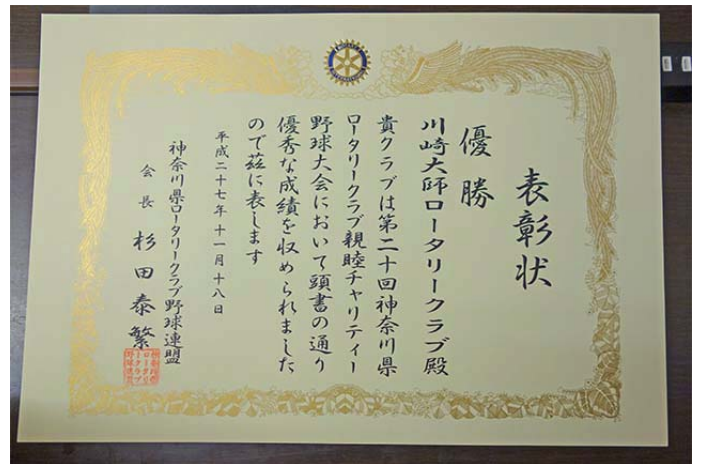 表彰状
優勝
川崎大師ロータリークラブ殿
貴クラブは第二十回神奈川県
ロータリークラブ親睦チャリティー
野球大会において頭書の通り
優秀な成績を収められました
ので茲に表します
平成二十七年十一月十八日
神奈川県ロータリークラブ野球連盟
会長 杉田泰繁